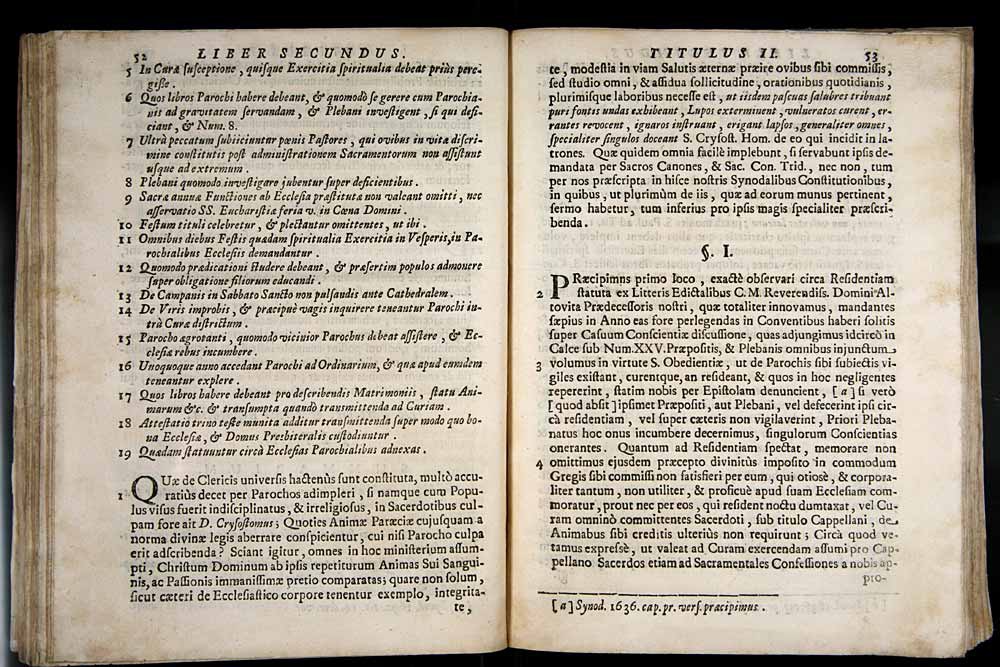 52 LIBER SECUNDUS.
5 In Curæ susceptione, quisque Exercitia spiritualia debeat priùs pere-
gisse.
6 Quos libros Parochi habere debeant, & quomodò se gerere cum Parochia-
nis ad gravitatem servandam, & Plebani investigent, si qui defi-
ciant, & Num. 8.
7 Ultrà peccatum subiiciuntur pœnis Pastores, qui ovibus in vitæ discri-
mine constitutis post administrationem Sacramentorum non assistunt
usque ad extremum.
8 Plebani quomodo investigare jubentur super deficientibus.
9 Sacræ annuæ Functiones ab Ecclesia præstitutæ non valeant omitti, nec
asservatio SS. Eucharistiæ feria v. in Cœna Domini.
10 Festum tituli celebretur, & plectantur omittentes, ut ibi.
11 Omnibus diebus Festis quædam spiritualia Exercitia in Vesperis, in Pa-
rochialibus Ecclesiis demandantur.
12 Quomodo prædicationi studere debeant, & præsertim populos admonere
super obligatione filiorum educandi.
13 De Campanis in Sabbato Sancto non pulsandis ante Cathedralem.
14 De Viris improbis, & præcipuè vagis inquirere teneantur Parochi in-
trà Curæ districtum.
15 Parocho ægrotanti, quomodo vicinior Parochus debeat assistere, & Ec-
clesiæ rebus incumbere.
16 Unoquoque anno accedant Parochi ad Ordinarium, & quæ apud eumdem
teneantur explere.
17 Quos libros habere debeant pro describendis Matrimoniis, statu Ani-
marum &c. & transumpta quandò transmittenda ad Curiam.
18 Attestatio trino teste munita additur transmittenda super modo quo bo-
na Ecclesiæ, & Domus Presbiteralis custodiuntur.
19 Quædam statuuntur circà Ecclesias Parochialibus adnexas.
QUæ de Clericis universis hactenùs sunt constituta, multò accu-
1 ratiùs decet per Parochos adimpleri, si namque cum Popu-
lus visus fuerit indisciplinatus, & irreligiosus, in Sacerdotibus cul-
pam fore ait D. Crysostomus; Quoties Animæ Paræciæ cujusquam a
norma divinæ legis aberrare conspicientur, cui nisi Parocho culpa
erit adscribenda? Sciant igitur, omnes in hoc ministerium assum-
pti, Christum Dominum ab ipsis repetiturum Animas Sui Sangui-
nis, ac Passionis immanissimæ pretio comparatas; quare non solum,
sicut cæteri de Ecclesiastico corpore tenentur exemplo, integrita-
te,
TITULUS II. 53
te, modestia in viam Salutis æternæ præire ovibus sibi commissis,
sed studio omni, & assidua sollicitudine, orationibus quotidianis,
plurimisque laboribus necesse est, ut iisdem pascuas salubres tribuant
puri fontis undas exhibeant, Lupos exterminent, vulneratos curent, er-
rantes revocent, ignaros instruant, erigant lapsos, generaliter omnes,
specialiter singulos doceant S. Crysost. Hom. de eo qui incidit in la-
trones. Quæ quidem omnia facilè implebunt, si servabunt ipsis de-
mandata per Sacros Canones, & Sac. Con. Trid., nec non, tum
per nos præscripta in hisce nostris Synodalibus Constitutionibus,
in quibus, ut plurimùm de iis, quæ ad eorum munus pertinent,
sermo habetur, tum inferius pro ipsis magis specialiter præscri-
benda.
§. I.
PRæcipimus primo loco, exactè observari circa Residentiam
2 statuta ex Litteris Edictalibus C. M. Reverendiss. Domini Al-
tovita Prædecessoris nostri, quæ totaliter innovamus, mandantes
sæpius in Anno eas fore perlegendas in Conventibus haberi solitis
super Casuum Conscientiæ discussione, quas adjungimus idcircò in
Calce sub Num. XXV. Præpositis, & Plebanis omnibus injunctum
3 volumus in virtute S. Obedientiæ, ut de Parochis sibi subiectis vi-
giles existant, curentque, an resideant, & quos in hoc negligentes
repererint, statim nobis per Epistolam denuncient, [a] si verò
[quod absit] ipsimet Præpositi, aut Plebani, vel defecerint ipsi cir-
cà residentiam, vel super cæteris non vigilaverint, Priori Pleba-
natus hoc onus incumbere decernimus, singulorum Conscientias
onerantes. Quantum ad Residentiam spectat, memorare non
4 omittimus ejusdem præcepto divinitùs imposito in commodum
Gregis sibi commissi non satisfieri per eum, qui otiosè, & corpora-
liter tantum, non utiliter, & proficuè apud suam Ecclesiam com-
moratur, prout nec per eos, qui resident noctu dumtaxat, vel Cu-
ram omninò committentes Sacerdoti, sub titulo Cappellani, de
Animabus sibi creditis ulteriùs non requirunt; Circà quod ve-
tamus expressè, ut valeat ad Curam exercendam assumi pro Cap-
pellano Sacerdos etiam ad Sacramentales Confessiones a nobis ap-
pro-
[a] Synod. 1636. cap. pr. vers. præcipimus.